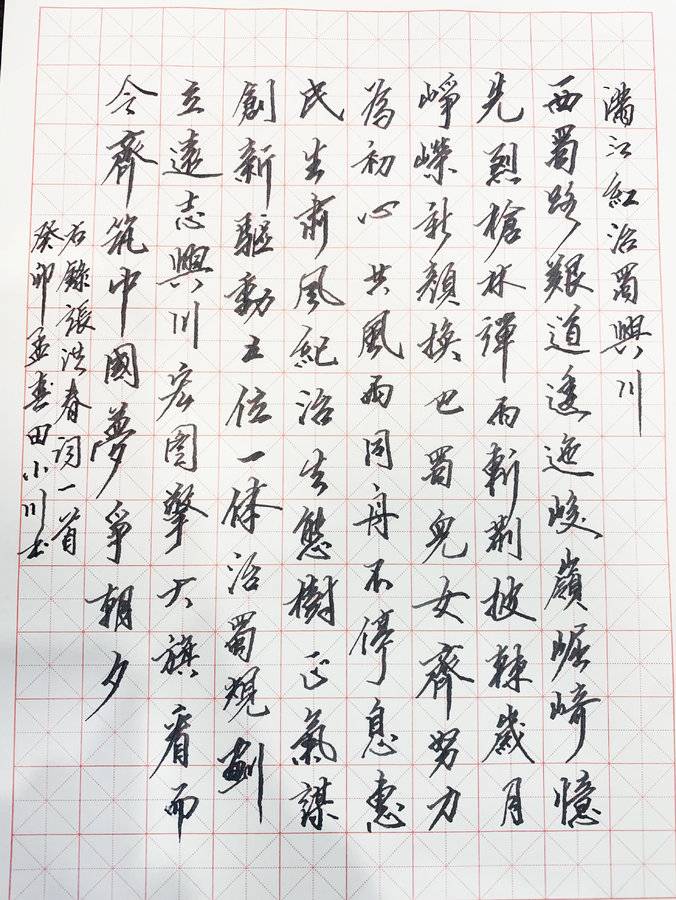 滿江紅治蜀興川
西蜀路艱道逶迤峻嶺崛崎憶
先烈槍林彈雨斬荊披棘歲月
崢嶸新顏換巴蜀兒女齊努力
為初心共風雨同舟不停息惠
民生肅風紀治生態樹正氣謀
創新驅動五位一体治蜀規劃
立遠志興川宏圖擎大旗看而
今齊筑中國夢爭朝夕
右錄張洪春词一首
癸卯孟春田小川书